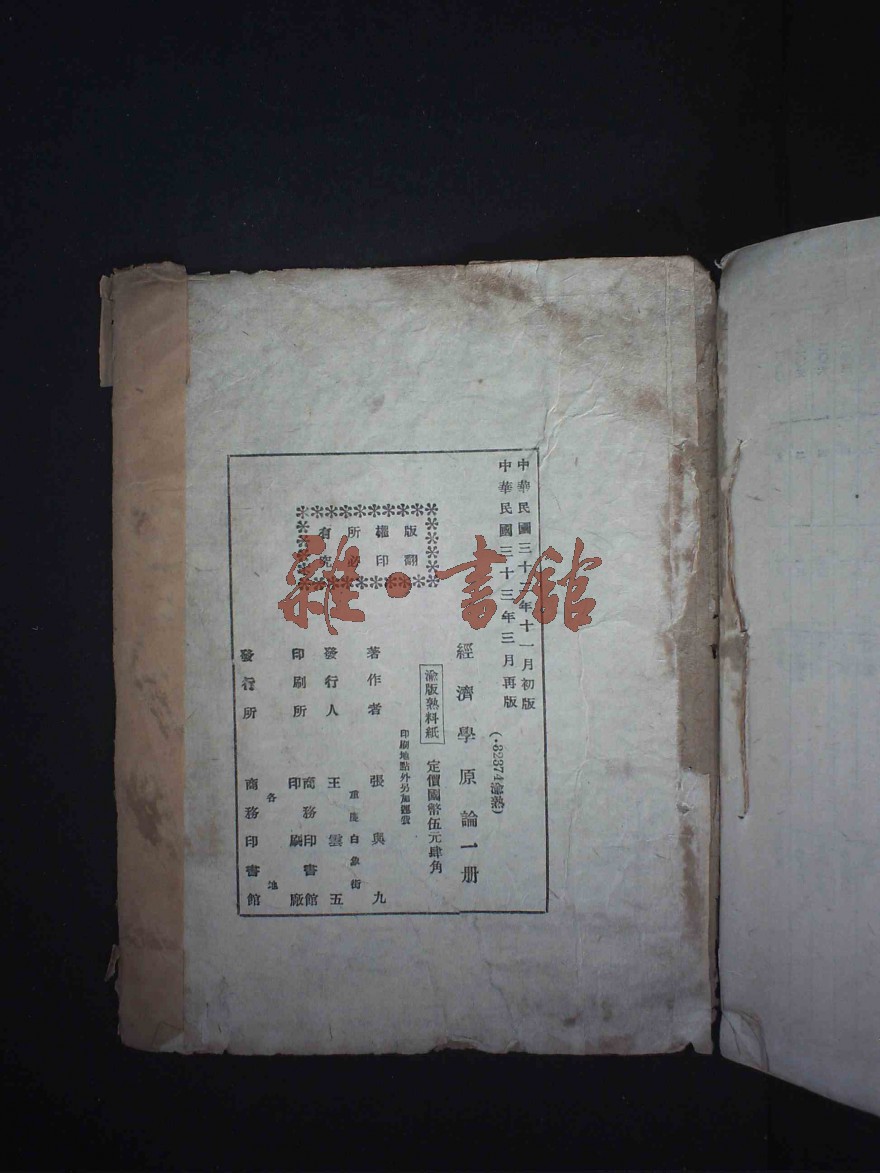 中華民國三十二年十一月初版
中華民國三十三年三月再版
(·82874渝熟)
經濟學原論一册
渝版熟料紙
定價國幣伍元肆角
印刷地點外另加運費
版權所有
翻印必究
著作者 張與九
重慶白象街
發行人 王雲五
印刷所 商務印書館印刷廠
各地
發行所 商務印書館
雜·書館